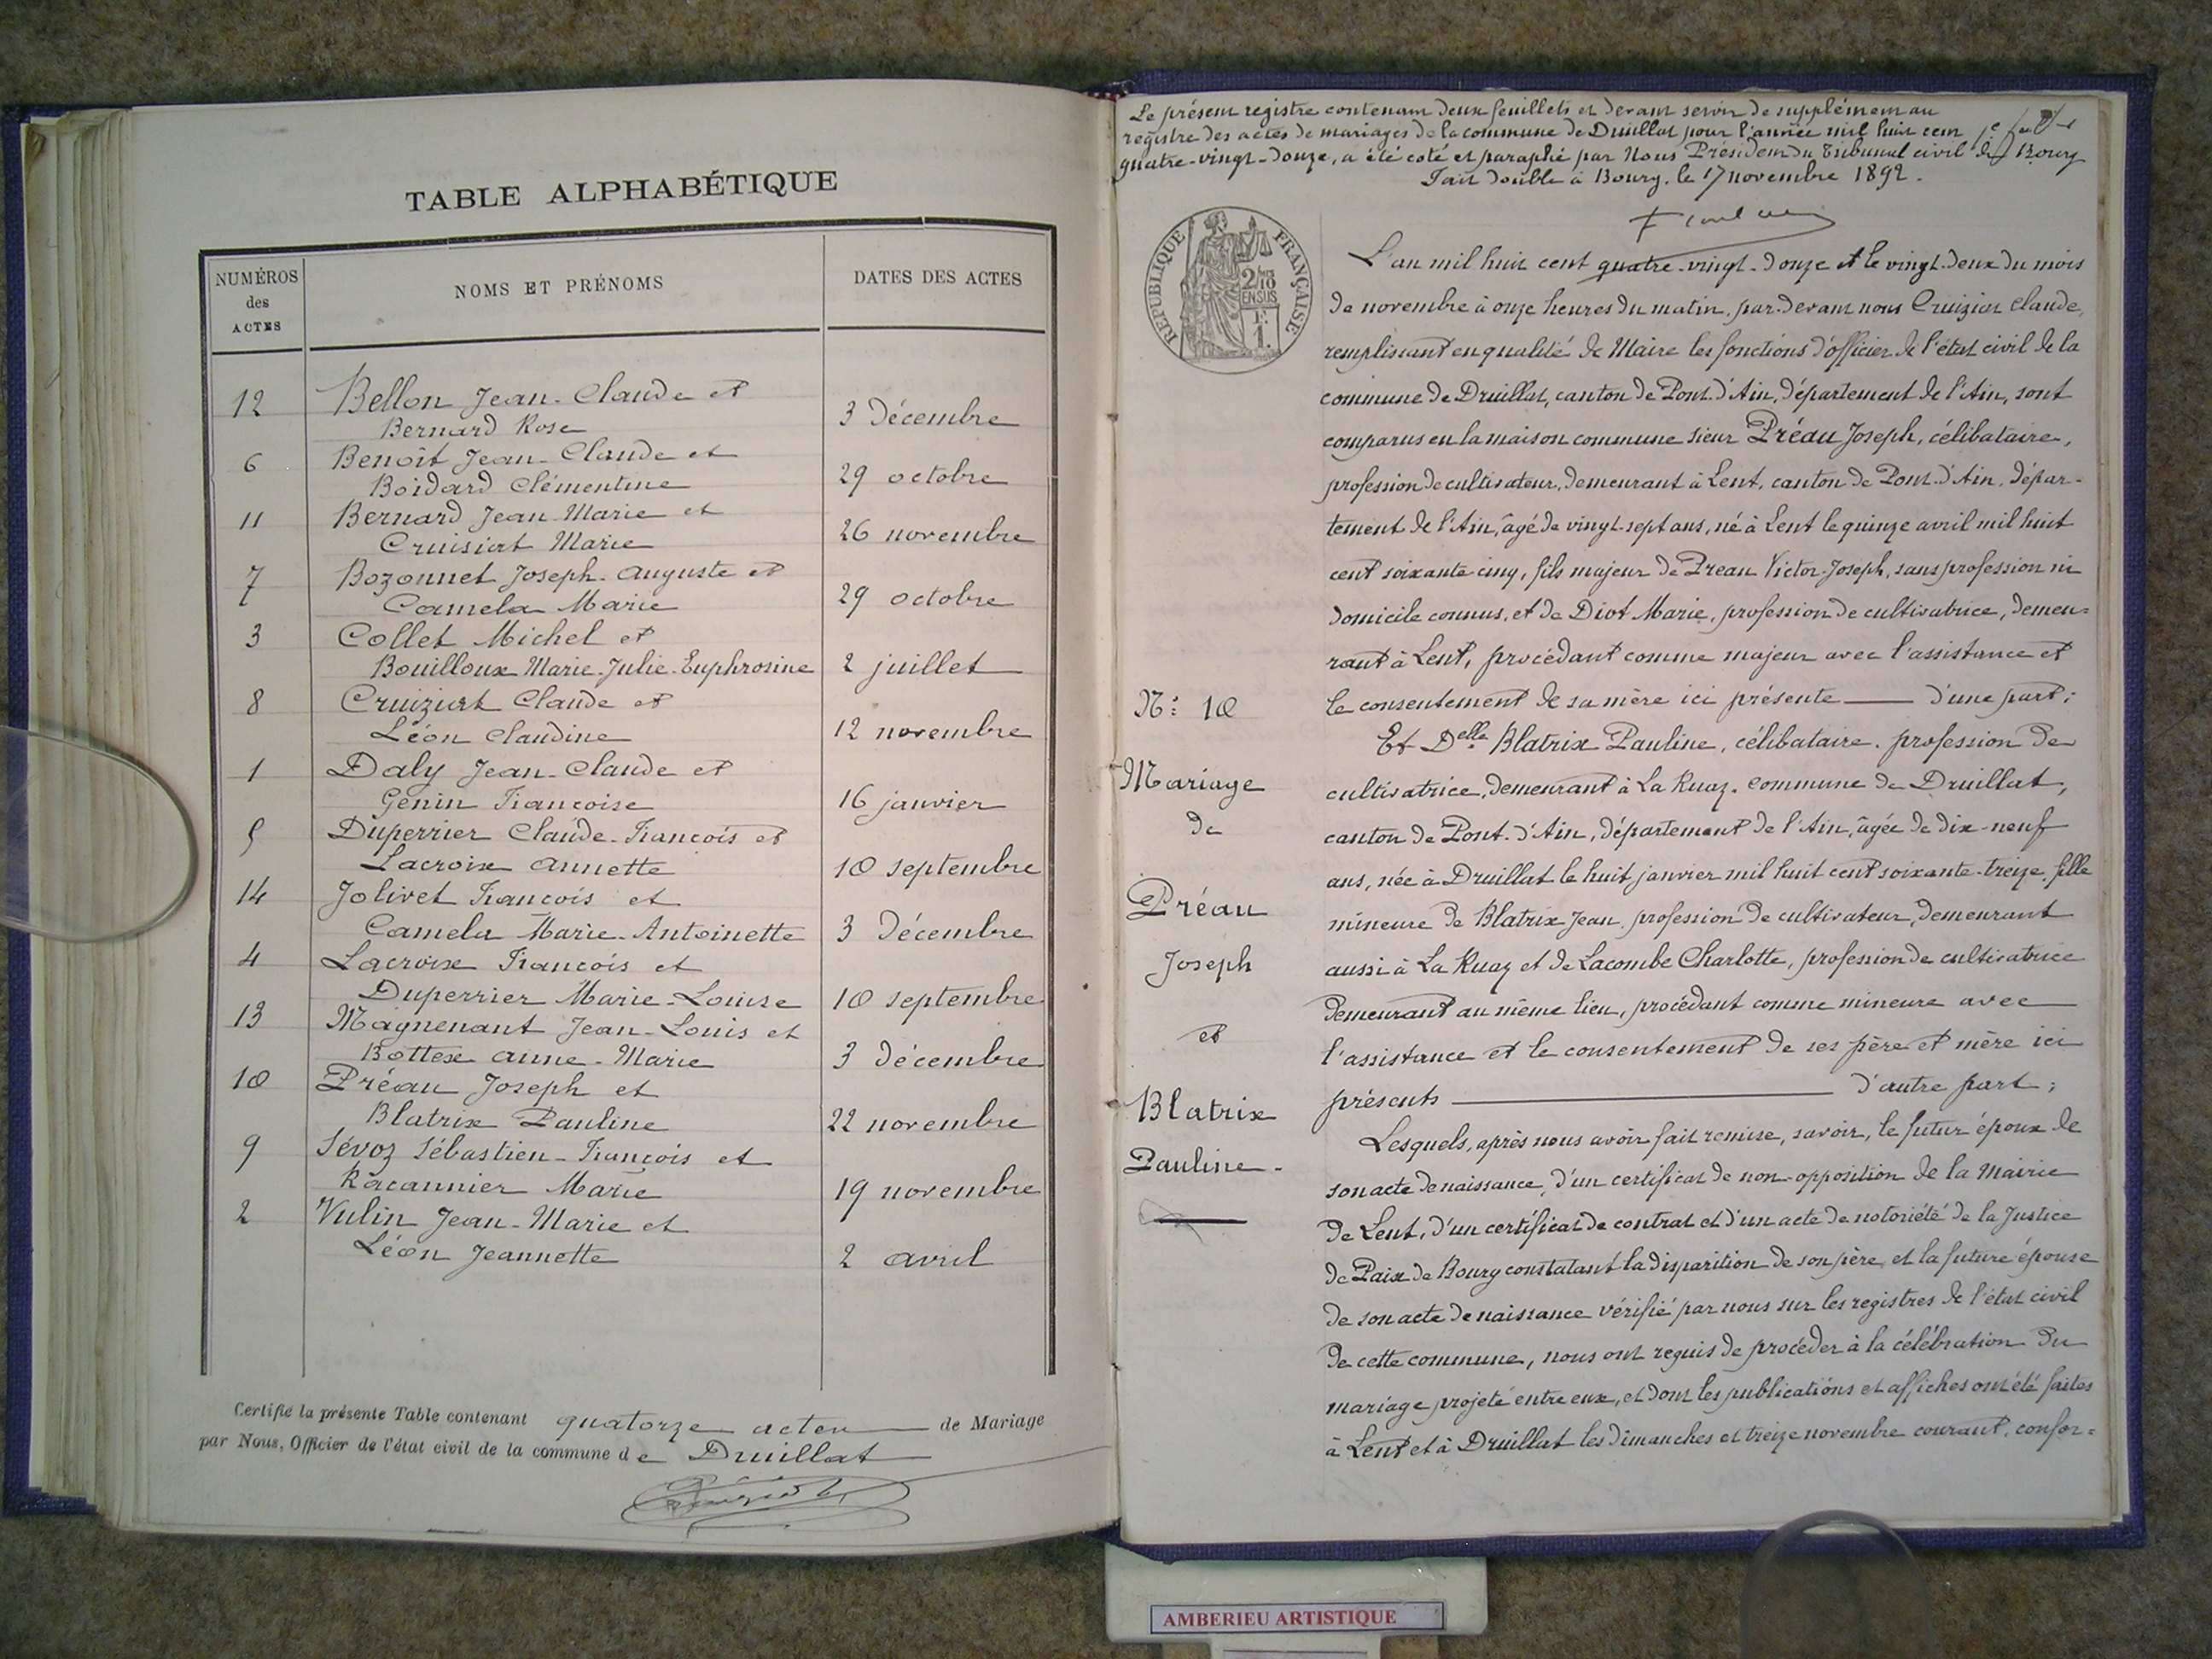 TABLE ALPHABÉTIQUE
NUMÉROS des ACTES
NOMS ET PRÉNOMS
DATES DES ACTES
12 Bellon Jean-Claude et
Bernard Rose 3 Décembre
6 Benoît Jean-Claude et
Boidard Clémentine 29 octobre
11 Bernard Jean-Marie et
Cruisiat Marie 26 novembre
7 Bozonnet Joseph-Auguste et
Camela Marie 29 octobre
3 Collet Michel et
Bouilloux Marie-Julie-Euphrosine 2 juillet
8 Cruiziat Claude et
Léon Claudine 12 novembre
1 Daly Jean-Claude et
Génin Françoise 16 janvier
5 Duperrier Claude-François et
Lacroix Annette 10 septembre
14 Jolivet François et
Camela Marie-Antoinette 3 Décembre
4 Lacroix François et
Duperrier Marie-Louise 10 septembre
13 Magnenant Jean-Louis et
Bottex Anne-Marie 3 décembre
10 Préau Joseph et
Blatrix Pauline 22 novembre
9 Sévoz Sébastien-François et
Racannier Marie 19 novembre
2 Vulin Jean-Marie et
Léon Jeannette 2 avril
Certifié la présente Table contenant quatorze actes de Mariage
par Nous, Officier de l'état civil de la commune de Druillat
Le présent registre contenant deux feuillets et devant servir de supplément au
registre des actes de mariages de la commune de Druillat pour l'année mil huit cent
quatre-vingt-douze, a été coté et paraphé par Nous Président du Tribunal civil de Bourg
Fait double à Bourg, le 17 novembre 1892.
RÉPUBLIQUE FRANÇAISE
2/10
EN SUS
1F.
L'an mil huit cent quatre-vingt-douze et le vingt-deux du mois
de novembre à onze heures du matin, par-devant nous Cruiziat Claude,
remplissant en qualité de Maire les fonctions d'officier de l'état civil de la
commune de Druillat, canton de Pont-d'Ain, département de l'Ain, sont
comparus en la maison commune sieur Préau Joseph, célibataire,
profession de cultivateur, demeurant à Lent, canton de Pont-d'Ain, dépar-
tement de l'Ain, âgé de vingt-sept ans, né à Lent le quinze avril mil huit
cent soixante cinq, fils majeur de Preau Victor-Joseph, sans profession ni
domicile connus, et de Diot Marie, profession de cultivatrice, demeu=
rant à Lent, procédant comme majeur avec l'assistance et
le consentement de sa mère ici présente — d'une part;
Et Delle Blatrix Pauline, célibataire, profession de
cultivatrice, demeurant à La Ruaz, commune de Druillat,
canton de Pont-d'Ain, département de l'Ain, âgée de dix-neuf
ans, née à Druillat le huit janvier mil huit cent soixante-treize, fille
mineure de Blatrix Jean, profession de cultivateur, demeurant
aussi à La Ruaz et de Lacombe Charlotte, profession de cultivatrice
demeurant au même lieu, procédant comme mineure avec
l'assistance et le consentement de ses père et mère ici
présents — d'autre part;
Lesquels, après nous avoir fait remise, savoir, le futur époux de
son acte de naissance, d'un certificat de non-opposition de la Mairie
de Lent, d'un certificat de contrat et d'un acte de notoriété de la Justice
de Paix de Bourg constatant la disparition de son père, et la future épouse
de son acte de naissance vérifié par nous sur les registres de l'état civil
de cette commune, nous ont requis de procéder à la célébration du
mariage projeté entre eux, et dont les publications et affiches ont été faites
à Lent et à Druillat les dimanches et treize novembre courant, confor=
N: 10
Mariage
de
Préau
Joseph
et
Blatrix
Pauline.
AMBERIEU ARTISTIQUE